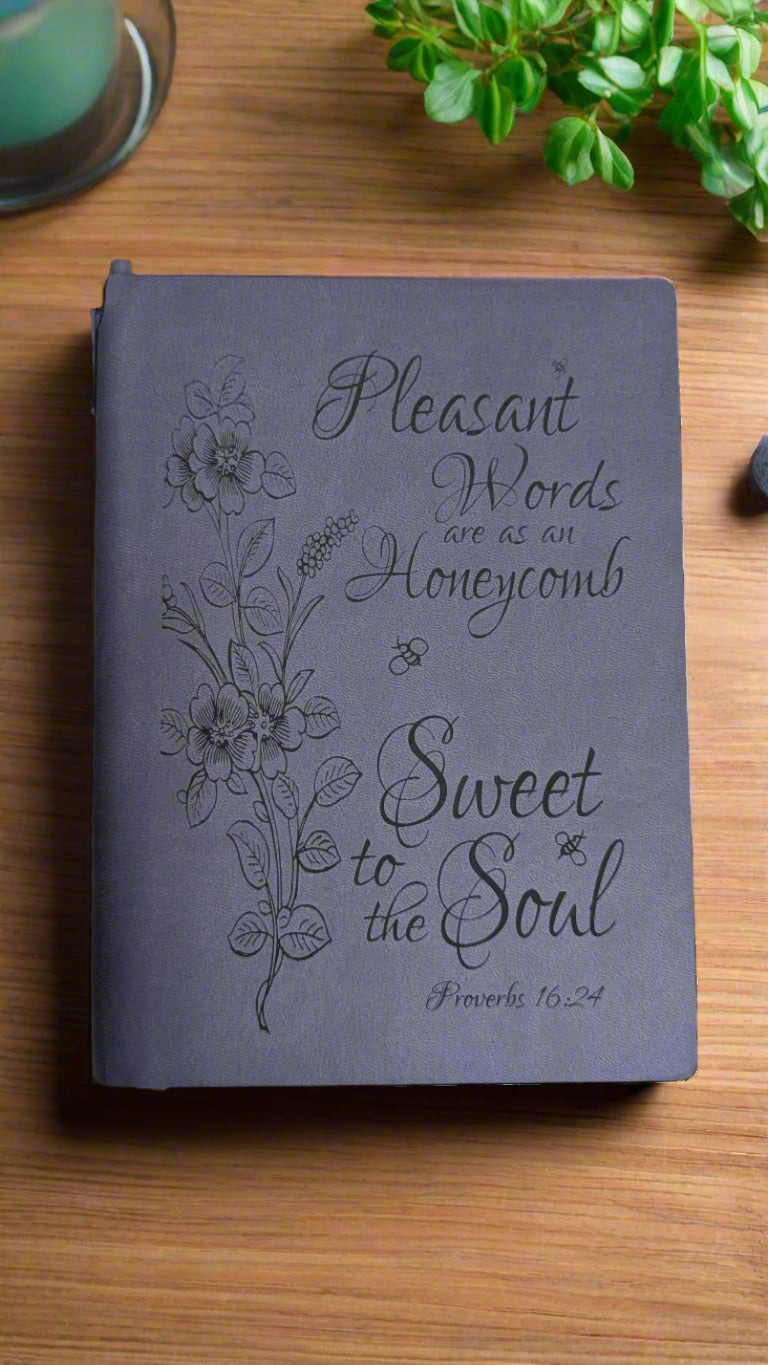 Pleasant
Words
are as an
Honeycomb
Sweet
to
the Soul
Proverbs 16:24